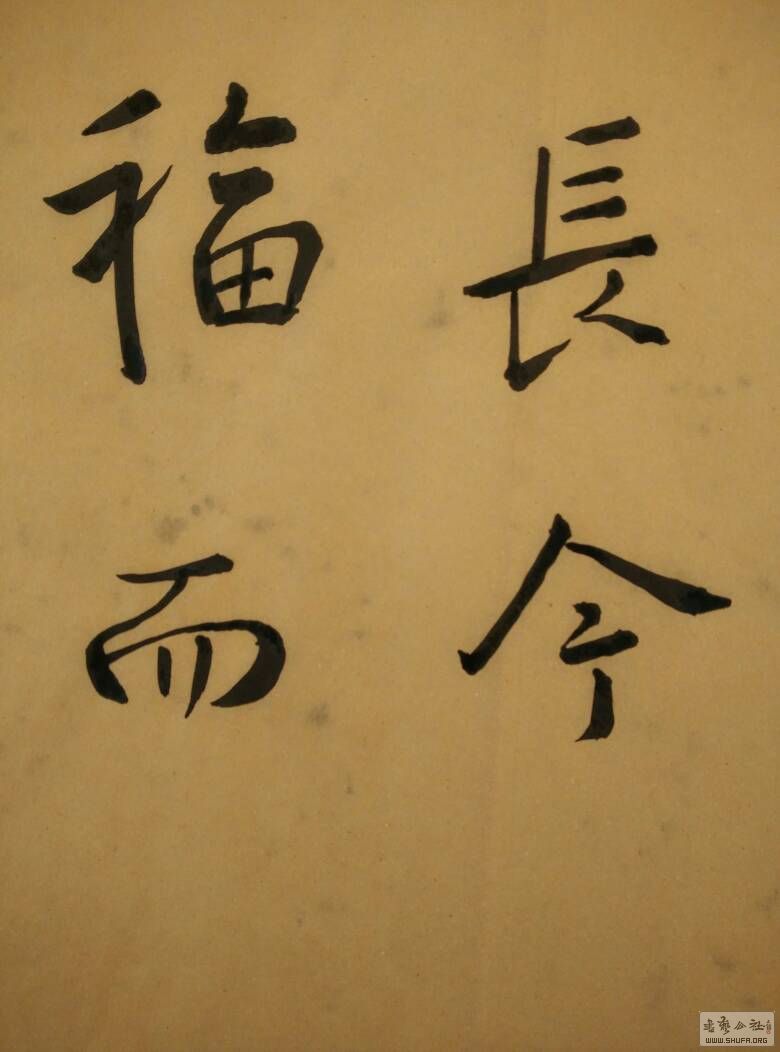 長今
福而
書藝公社
WWW.SHUFA.ORG